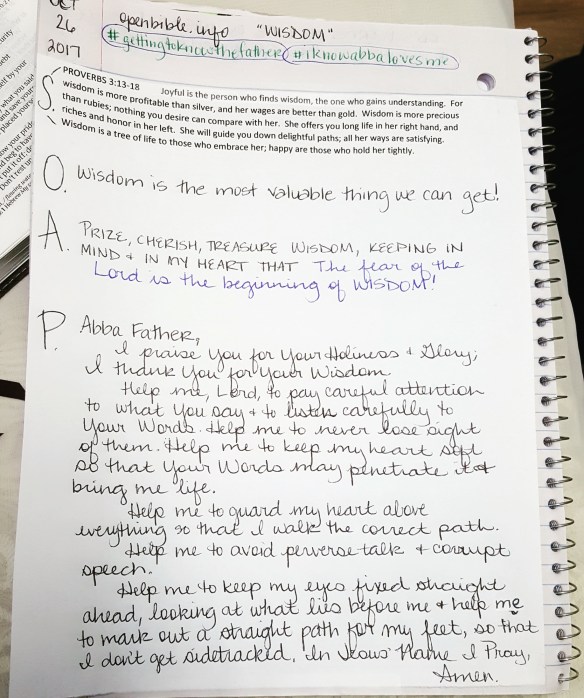 OCT
26
2017
openbible.info "WISDOM"
#gettingtoknowthefather #iknowabbalovesme
S. PROVERBS 3:13-18 Joyful is the person who finds wisdom, the one who gains understanding. For
wisdom is more profitable than silver, and her wages are better than gold. Wisdom is more precious
than rubies; nothing you desire can compare with her. She offers you long life in her right hand, and
riches and honor in her left. She will guide you down delightful paths; all her ways are satisfying.
Wisdom is a tree of life to those who embrace her; happy are those who hold her tightly.
O. Wisdom is the most valuable thing we can get!
A. PRIZE, CHERISH, TREASURE WISDOM, KEEPING IN
MIND + IN MY HEART THAT The fear of the
Lord is the beginning of WISDOM!
P. Abba Father,
I praise You for Your Holiness + Glory;
I thank You for Your Wisdom.
Help me, Lord, to pay careful attention
to what You say + to listen carefully to
Your Words. Help me to never lose sight
of them. Help me to keep my heart soft
so that Your Words may penetrate it +
bring me life.
Help me to guard my heart above
everything so that I walk the correct path.
Help me to avoid perverse talk + corrupt
speech.
Help me to keep my eyes fixed straight
ahead, looking at what lies before me + help me
to mark out a straight path for my feet, so that
I don't get sidetracked. In Jesus' Name I Pray,
Amen.